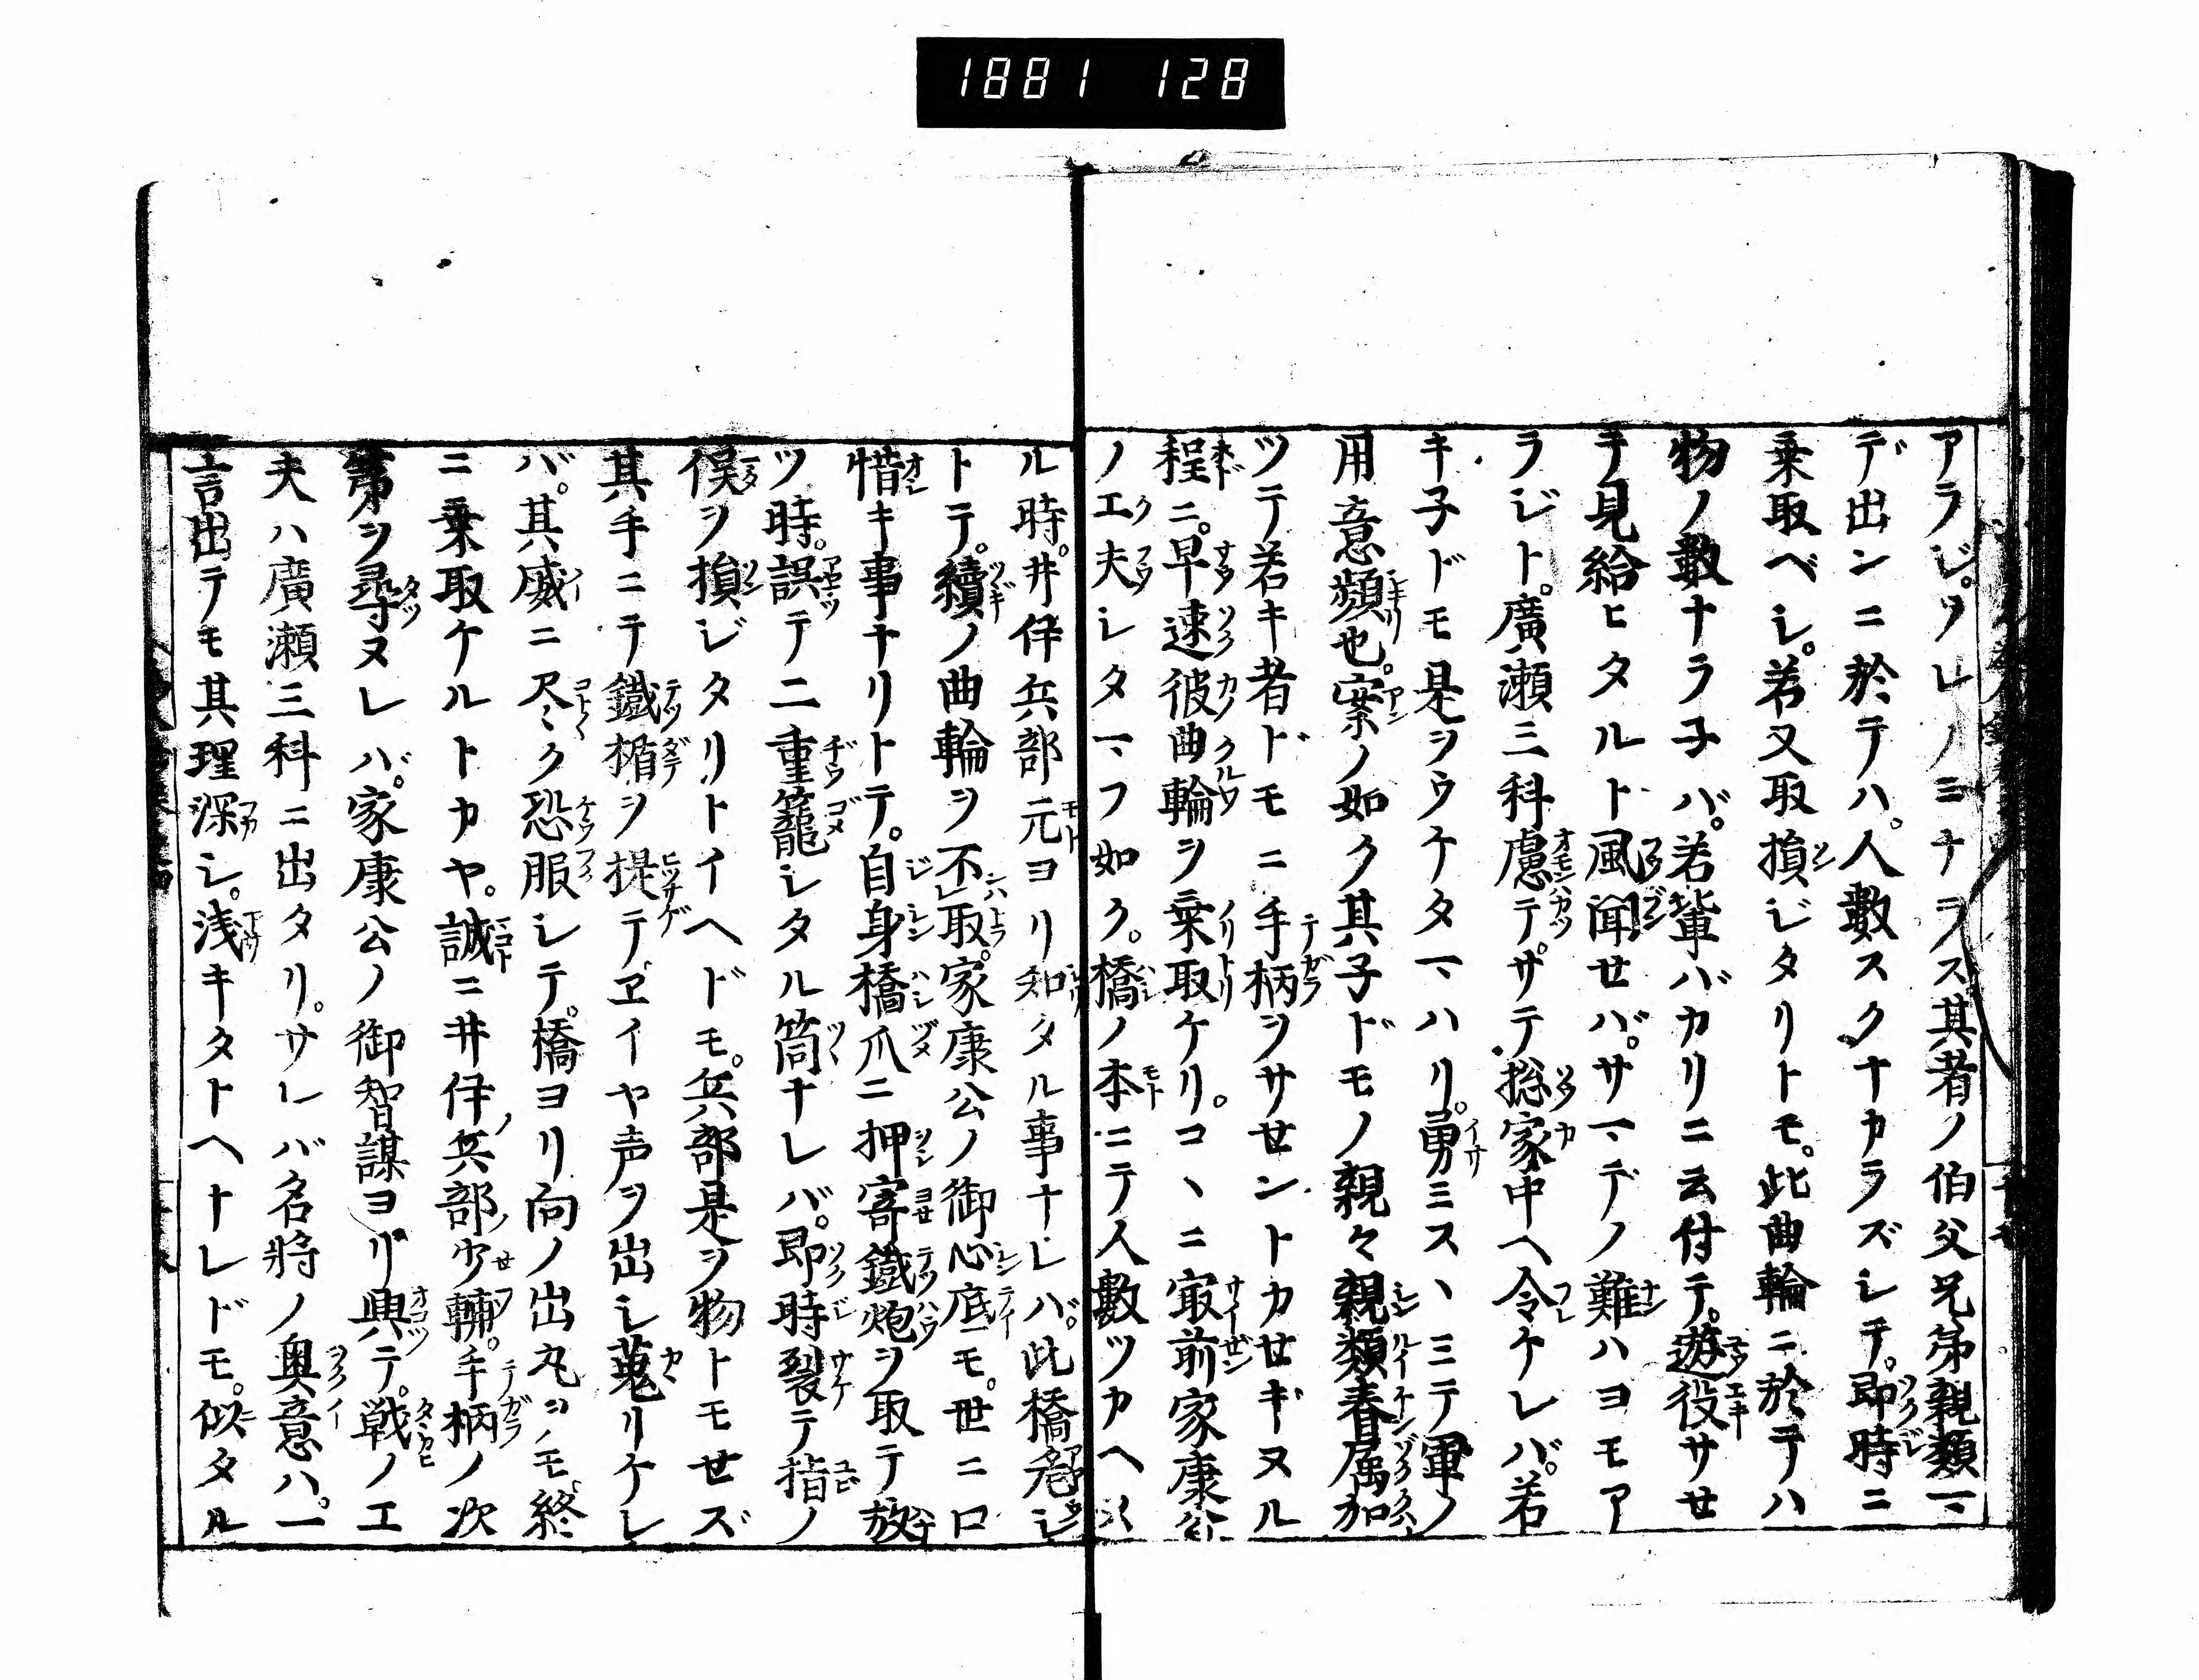 1881 128
アラジ。ソレノミナラス其者ノ伯父兄弟親類マ
デ出ンニ於テハ。人數スクナカラズシテ。即時ニ
乗取ベシ。若又取損ジタリトモ。此曲輪ニ於テハ
物ノ數ナラ子バ。若輩バカリニ云付テ。遊役サセ
手見給ヒタルト風聞セバ。サマデノ難ハヨモア
ラジト。廣瀬三科慮テ。サテ捴家中へ令ケレバ。若
キ子ドモ是ヲウケタマハリ。勇ミスヽミテ軍ノ
用意頻也。案ノ如ク其子ドモノ親々親類眷属加
ツテ若キ者ドモニ手柄ヲサセントカセギヌル
程ニ。早速彼曲輪ヲ乗取ケリ。コヽニ最前家康公
ノ工夫シタマフ如ク。橋ノ本ニテ人數ツカヘ
ル時。井伊兵部元ヨリ知タル事ナレバ。此橋危シ
トテ。續ノ曲輪ヲ不取。家康公ノ御心底モ。世ニ口
惜キ事ナリトテ。自身橋爪ニ押寄鐵炮ヲ取テ放
ツ時。誤テ二重籠シタル筒ナレバ。即時裂テ指ノ
俣ヲ損ジタリトイヘドモ。兵部是ヲ物トモセズ
其手ニテ鐵楯ヲ提テヱイヤ声ヲ出シ蒐リケレ
バ。其威ニ尽ク恐服シテ。橋ヨリ向ノ出丸ヲモ。終
ニ乗取ケルトカヤ。誠ニ井伊兵部少輔。手柄ノ次
第ヲ尋ヌレハ。家康公ノ御智謀ヨリ興テ。戦ノエ
夫ハ廣瀬三科ニ出タリ。サレバ名將ノ奥意ハ。一
言出テモ其理深シ。浅キタトヘナレドモ。似タル